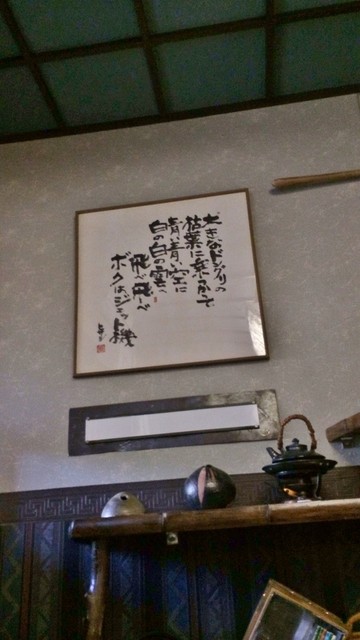 大きなドングリ
枯葉に
青い青い空に
白の白の雲へ
飛べ飛べ
ボクはジェット機